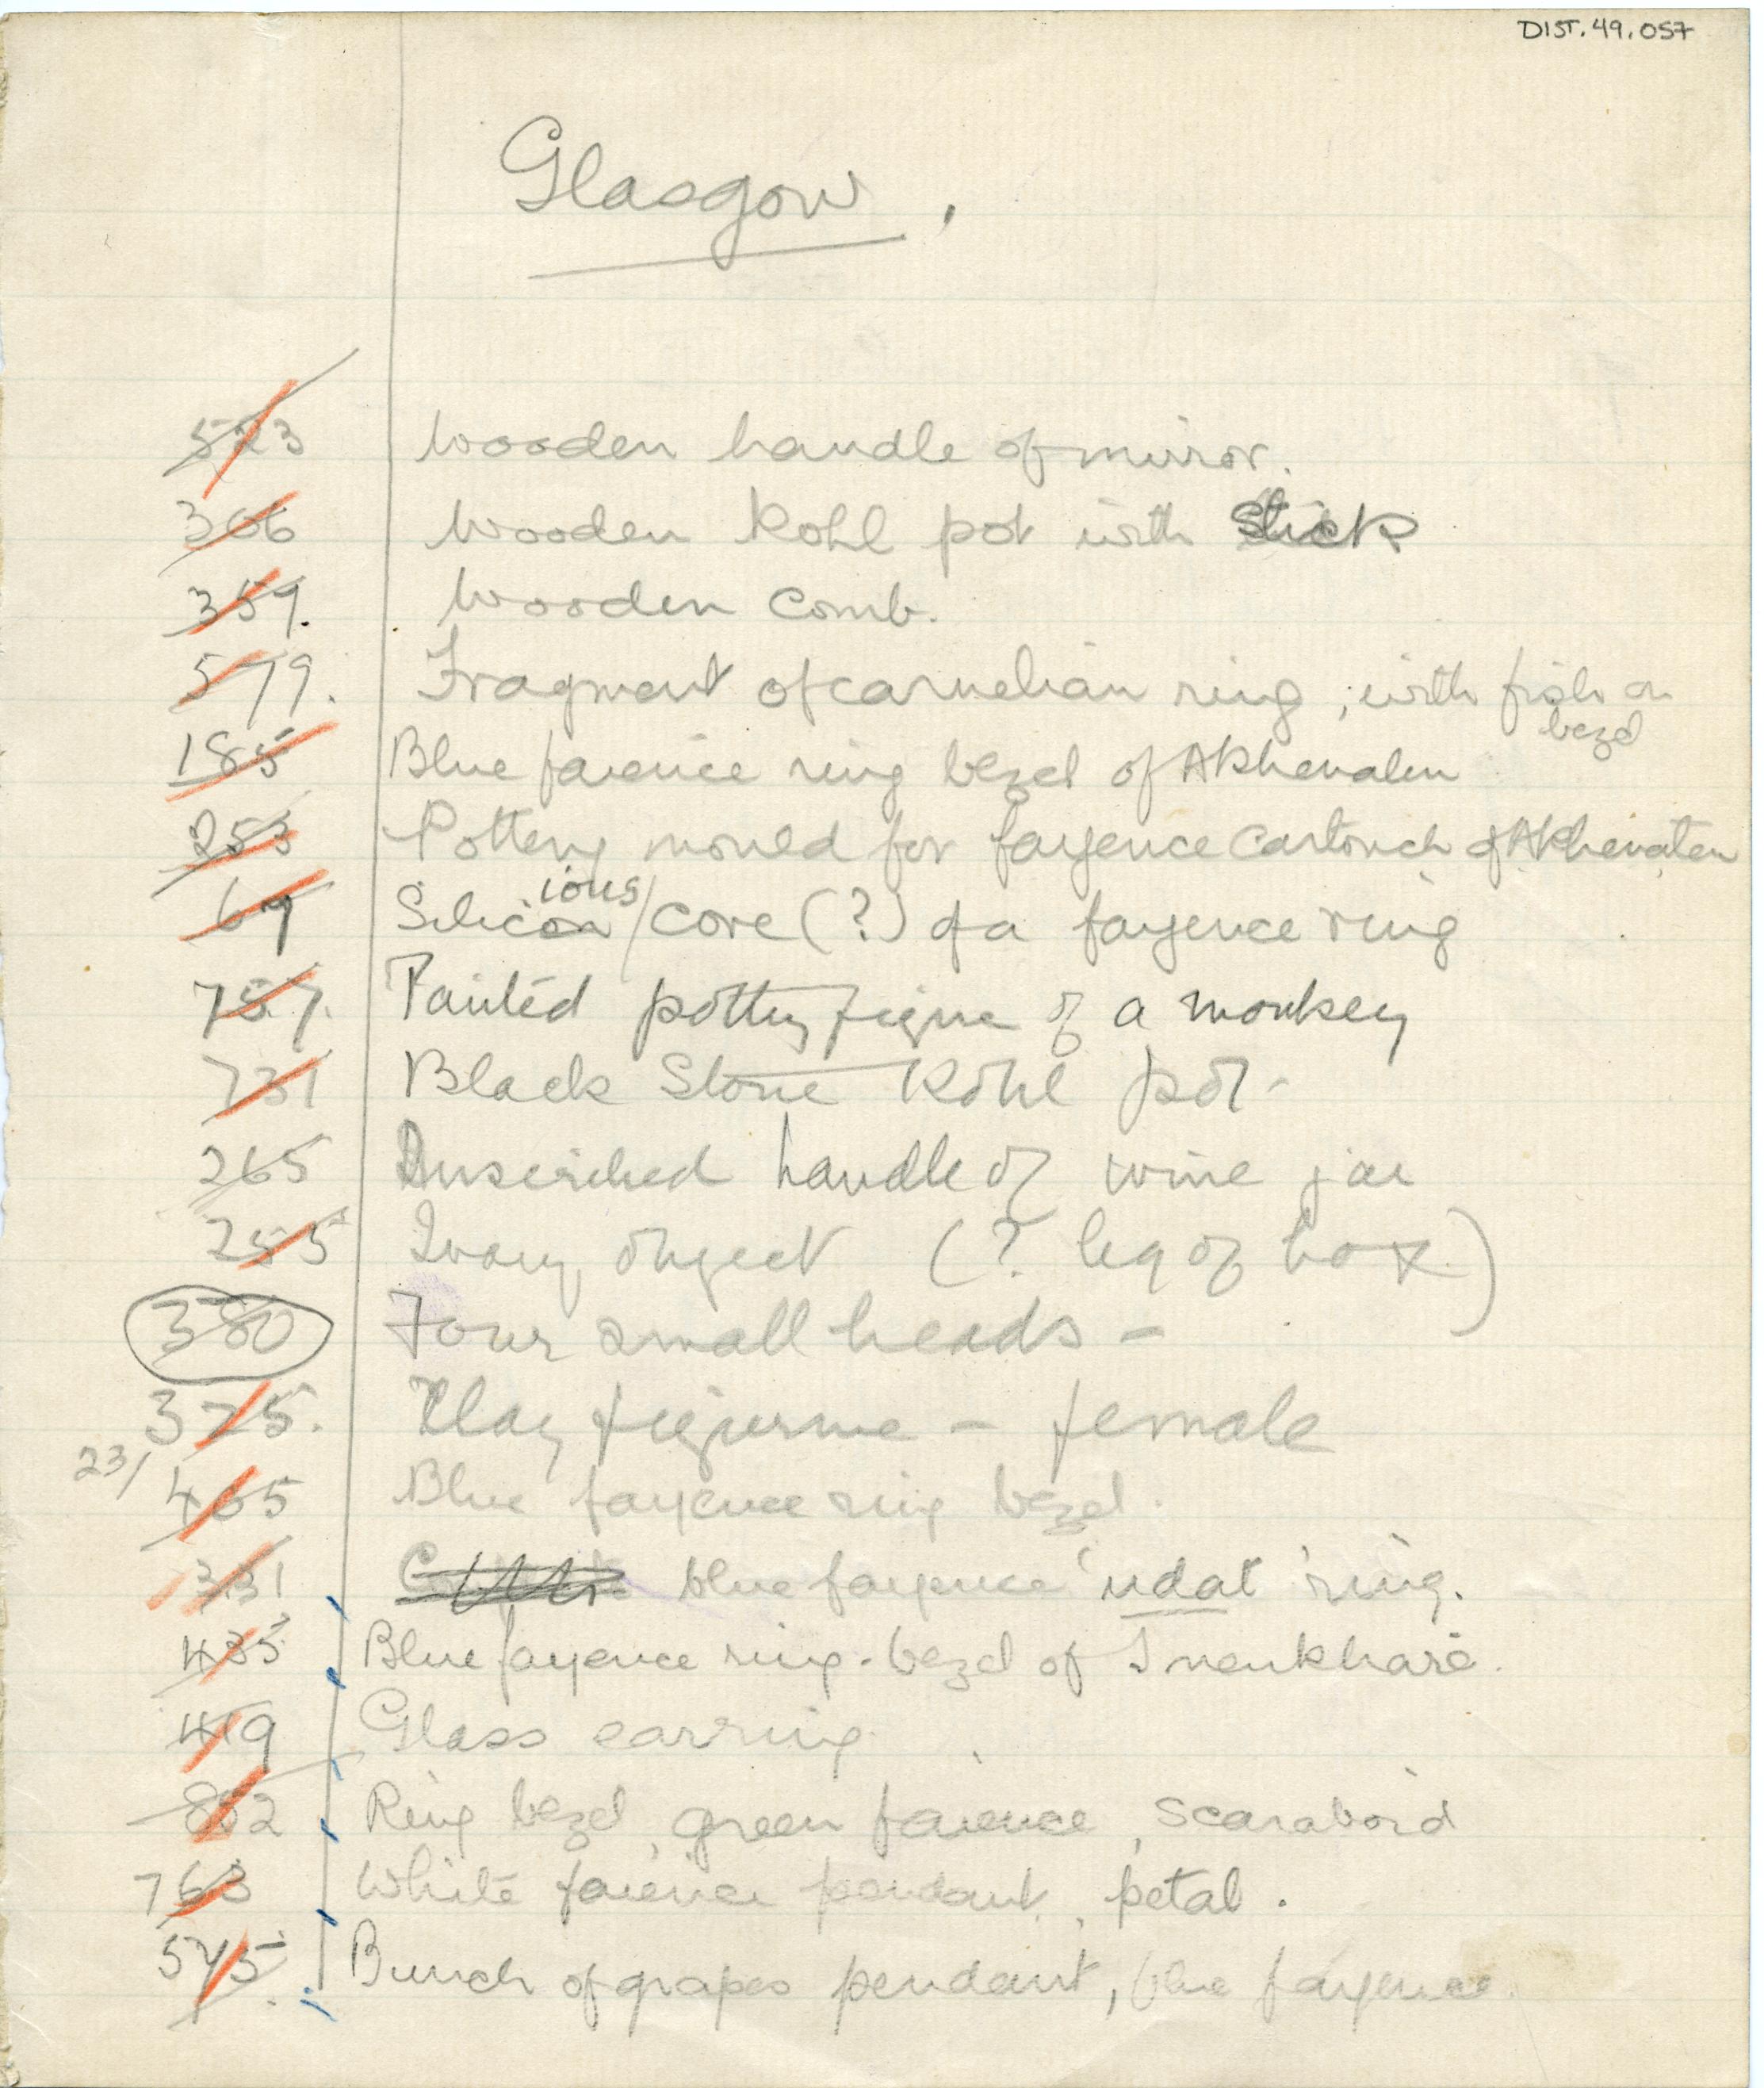 DIST.49.057
Glasgow.
523 Wooden handle of mirror.
366 Wooden Kohl pot with Stick
359. Wooden Comb.
579. Fragment of carnelian ring, with fish on
bezel
185 Blue faience ring bezel of Akhenaten
253 Pottery mould for fayence Cartouch of Akhenaten
ious
69 Silicon / core (?) of a fayence ring
757. Painted pottery figure of a monkey
731 Black Stone Kohl pot-
265 Inscribed handle of wine jar
255 Ivory object (? leg of box)
380 Four small heads -
325. Clay figurine - female
23/
465 Blue fayence ring bezel.
331 blue fayence 'udat' ring.
435 Blue fayence ring-bezel of Smenkhare.
419 Glass earring
802 Ring bezel, green faience, Scaraboid
763 White faience pendant, petal.
545. Bunch of grapes pendant, blue fayence.